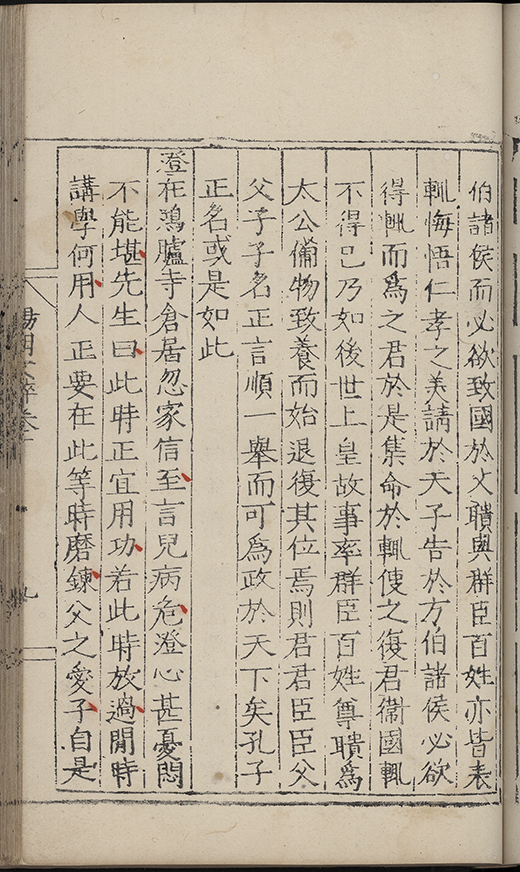 伯諸侯而必欲致國於父聵與群臣百姓亦皆表
輒悔悟仁孝之美請於天子告於方伯諸侯必欲
得輒而爲之君於是集命於輒使之復君衞國輒
不得已乃如後世上皇故事率群臣百姓尊聵爲
太公備物致養而始退復其位焉則君君臣臣父
父子子名正言順一舉而可爲政於天下矣孔子
正名或是如此
澄在鴻臚寺倉居忽家信至言兒病危澄心甚憂悶
不能堪先生曰此時正宜用功若此時放過閒時
講學何用人正要在此等時磨鍊父之愛子自是
陽明文粹卷
九